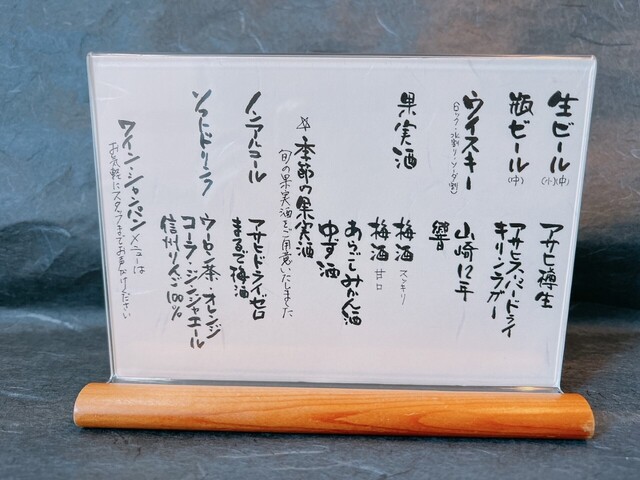 生ビール (小)(中) アサヒ樽生
瓶ビール (中) アサヒスーパードライ
キリンラガー
ウイスキー 山崎12年
(ロック・水割り・ソーダ割) 響
果実酒 梅酒 スッキリ
梅酒 甘口
あらごしみかん酒
ゆず酒
季節の果実酒
旬の果実酒をご用意いたしました
ノンアルコール アサヒドライゼロ
まるで梅酒
ソフトドリンク ウーロン茶・オレンジ
コーラ・ジンジャエール
信州りんご100%
ワイン・シャンパンメニューは
お気軽にスタッフまでお声がけください